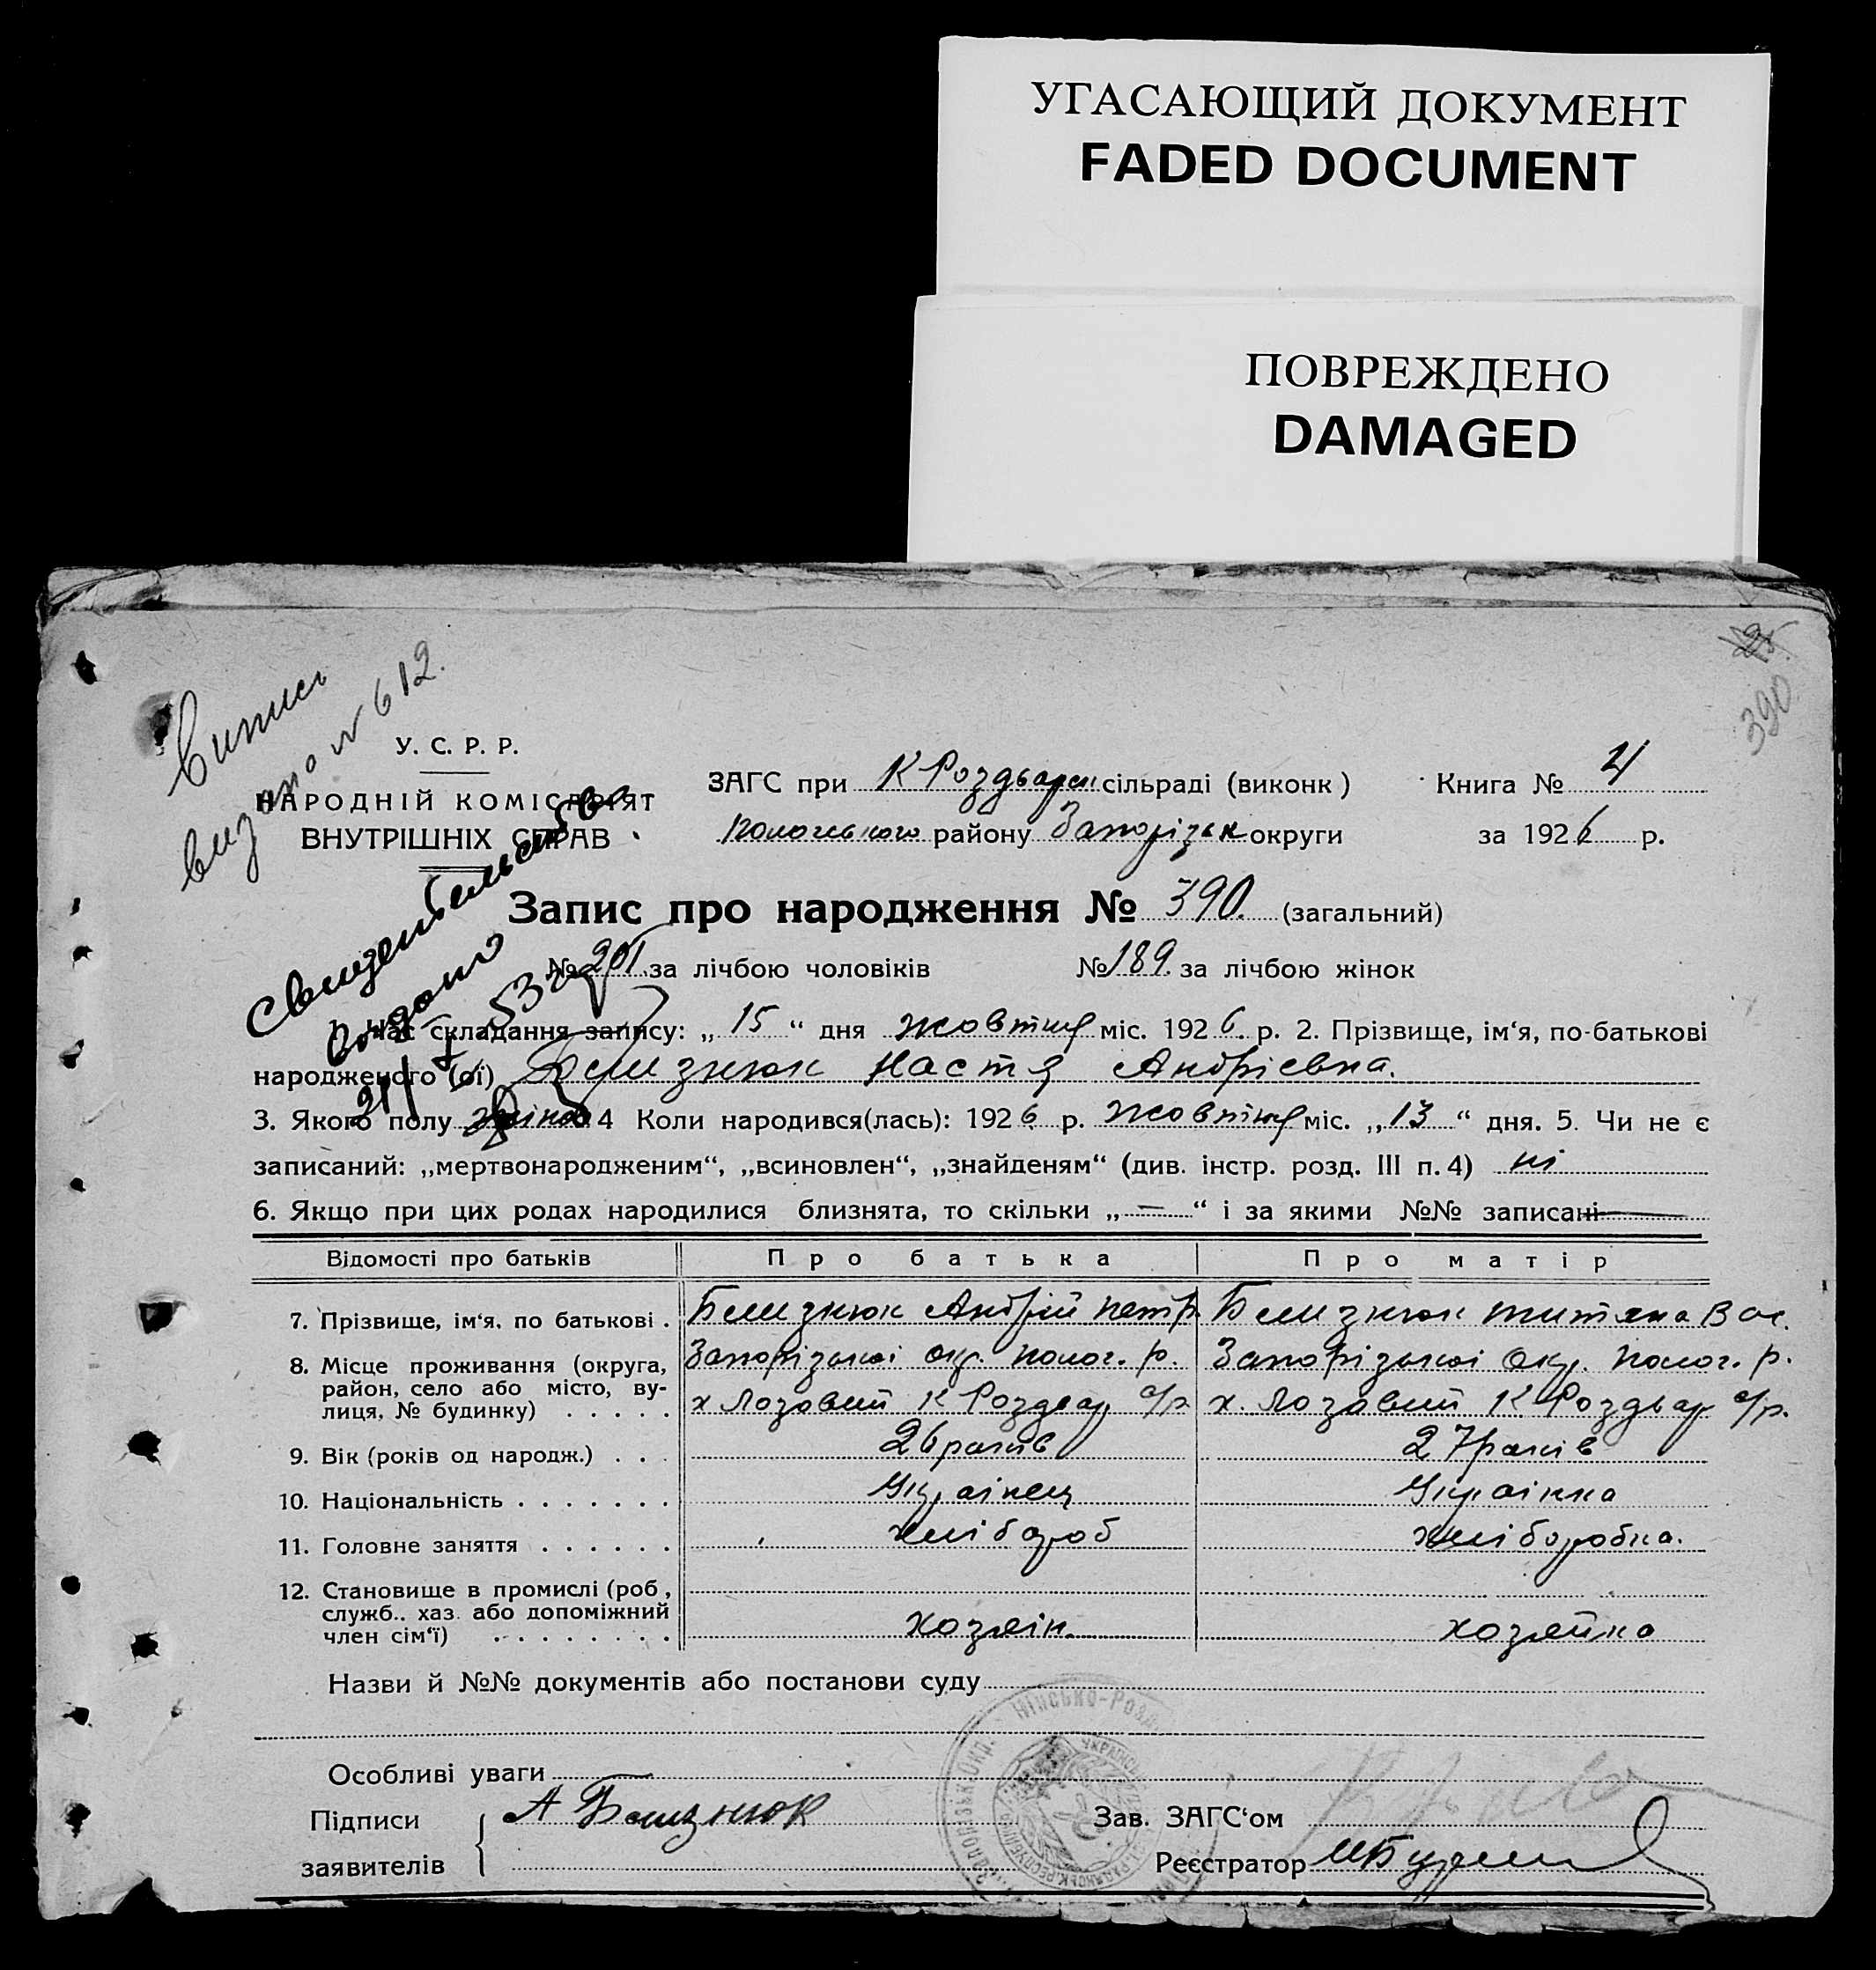 УГАСАЮЩИЙ ДОКУМЕНТ
FADED DOCUMENT
ПОВРЕЖДЕНО
DAMAGED
25.
390
Випись
видано № 612.
У. С. Р. Р.
НАРОДНІЙ КОМІСАРІЯТ
ВНУТРІШНІХ СПРАВ
ЗАГС при К Роздорськ сільраді (виконк) Книга № 4
Пологівського району Запорізьк округи за 1926 р.
Свидетельство
выдано
21/X 53 г.
Запис про народження № 390. (загальний)
№ 201 за лічбою чоловіків № 189 за лічбою жінок
1. Час складання запису: „15“ дня жовтня міс. 1926 р. 2. Прізвище, ім'я, по-батькові
народженого (ої) Близнюк Настя Андрієвна.
3. Якого полу жіноч 4 Коли народився(лась): 1926 р. жовтня міс. „13“ дня. 5. Чи не є
записаний: „мертвонародженим“, „всиновлен“, „знайденям“ (див. інстр. розд. III п. 4) ні
6. Якщо при цих родах народилися близнята, то скільки „—“ і за якими №№ записані —
Відомості про батьків Про батька Про матір
7. Прізвище, ім'я, по батькові . Близнюк Андрій Петр. Близнюк Титяна Вас.
8. Місце проживання (округа, район, село або місто, вулиця, № будинку) . . . . . Запорізької окр. Полог. р. Запорізької Окр. Полог. р.
х Лозовий К Роздор с/р х. Лозовий К Роздор с/р.
9. Вік (років од народж.) . . . 26 років 27 років
10. Національність . . . . . . . Українец Українка
11. Головне заняття . . . . . . хлібороб хліборобка.
12. Становище в промислі (роб, служб., хаз. або допоміжний член сім'ї) . . . . . . . . хозяін. хозяйка
Назви й №№ документів або постанови суду
Особливі уваги
Підписи заявителів { А Близнюк
Зав. ЗАГС'ом
Реєстратор